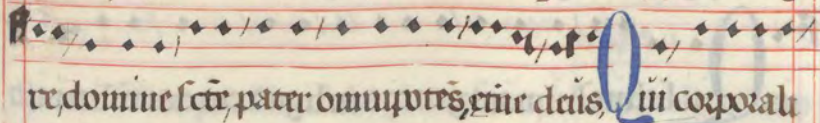 re, domine scte, pater omnipotēs, etne deus, Qui corporali